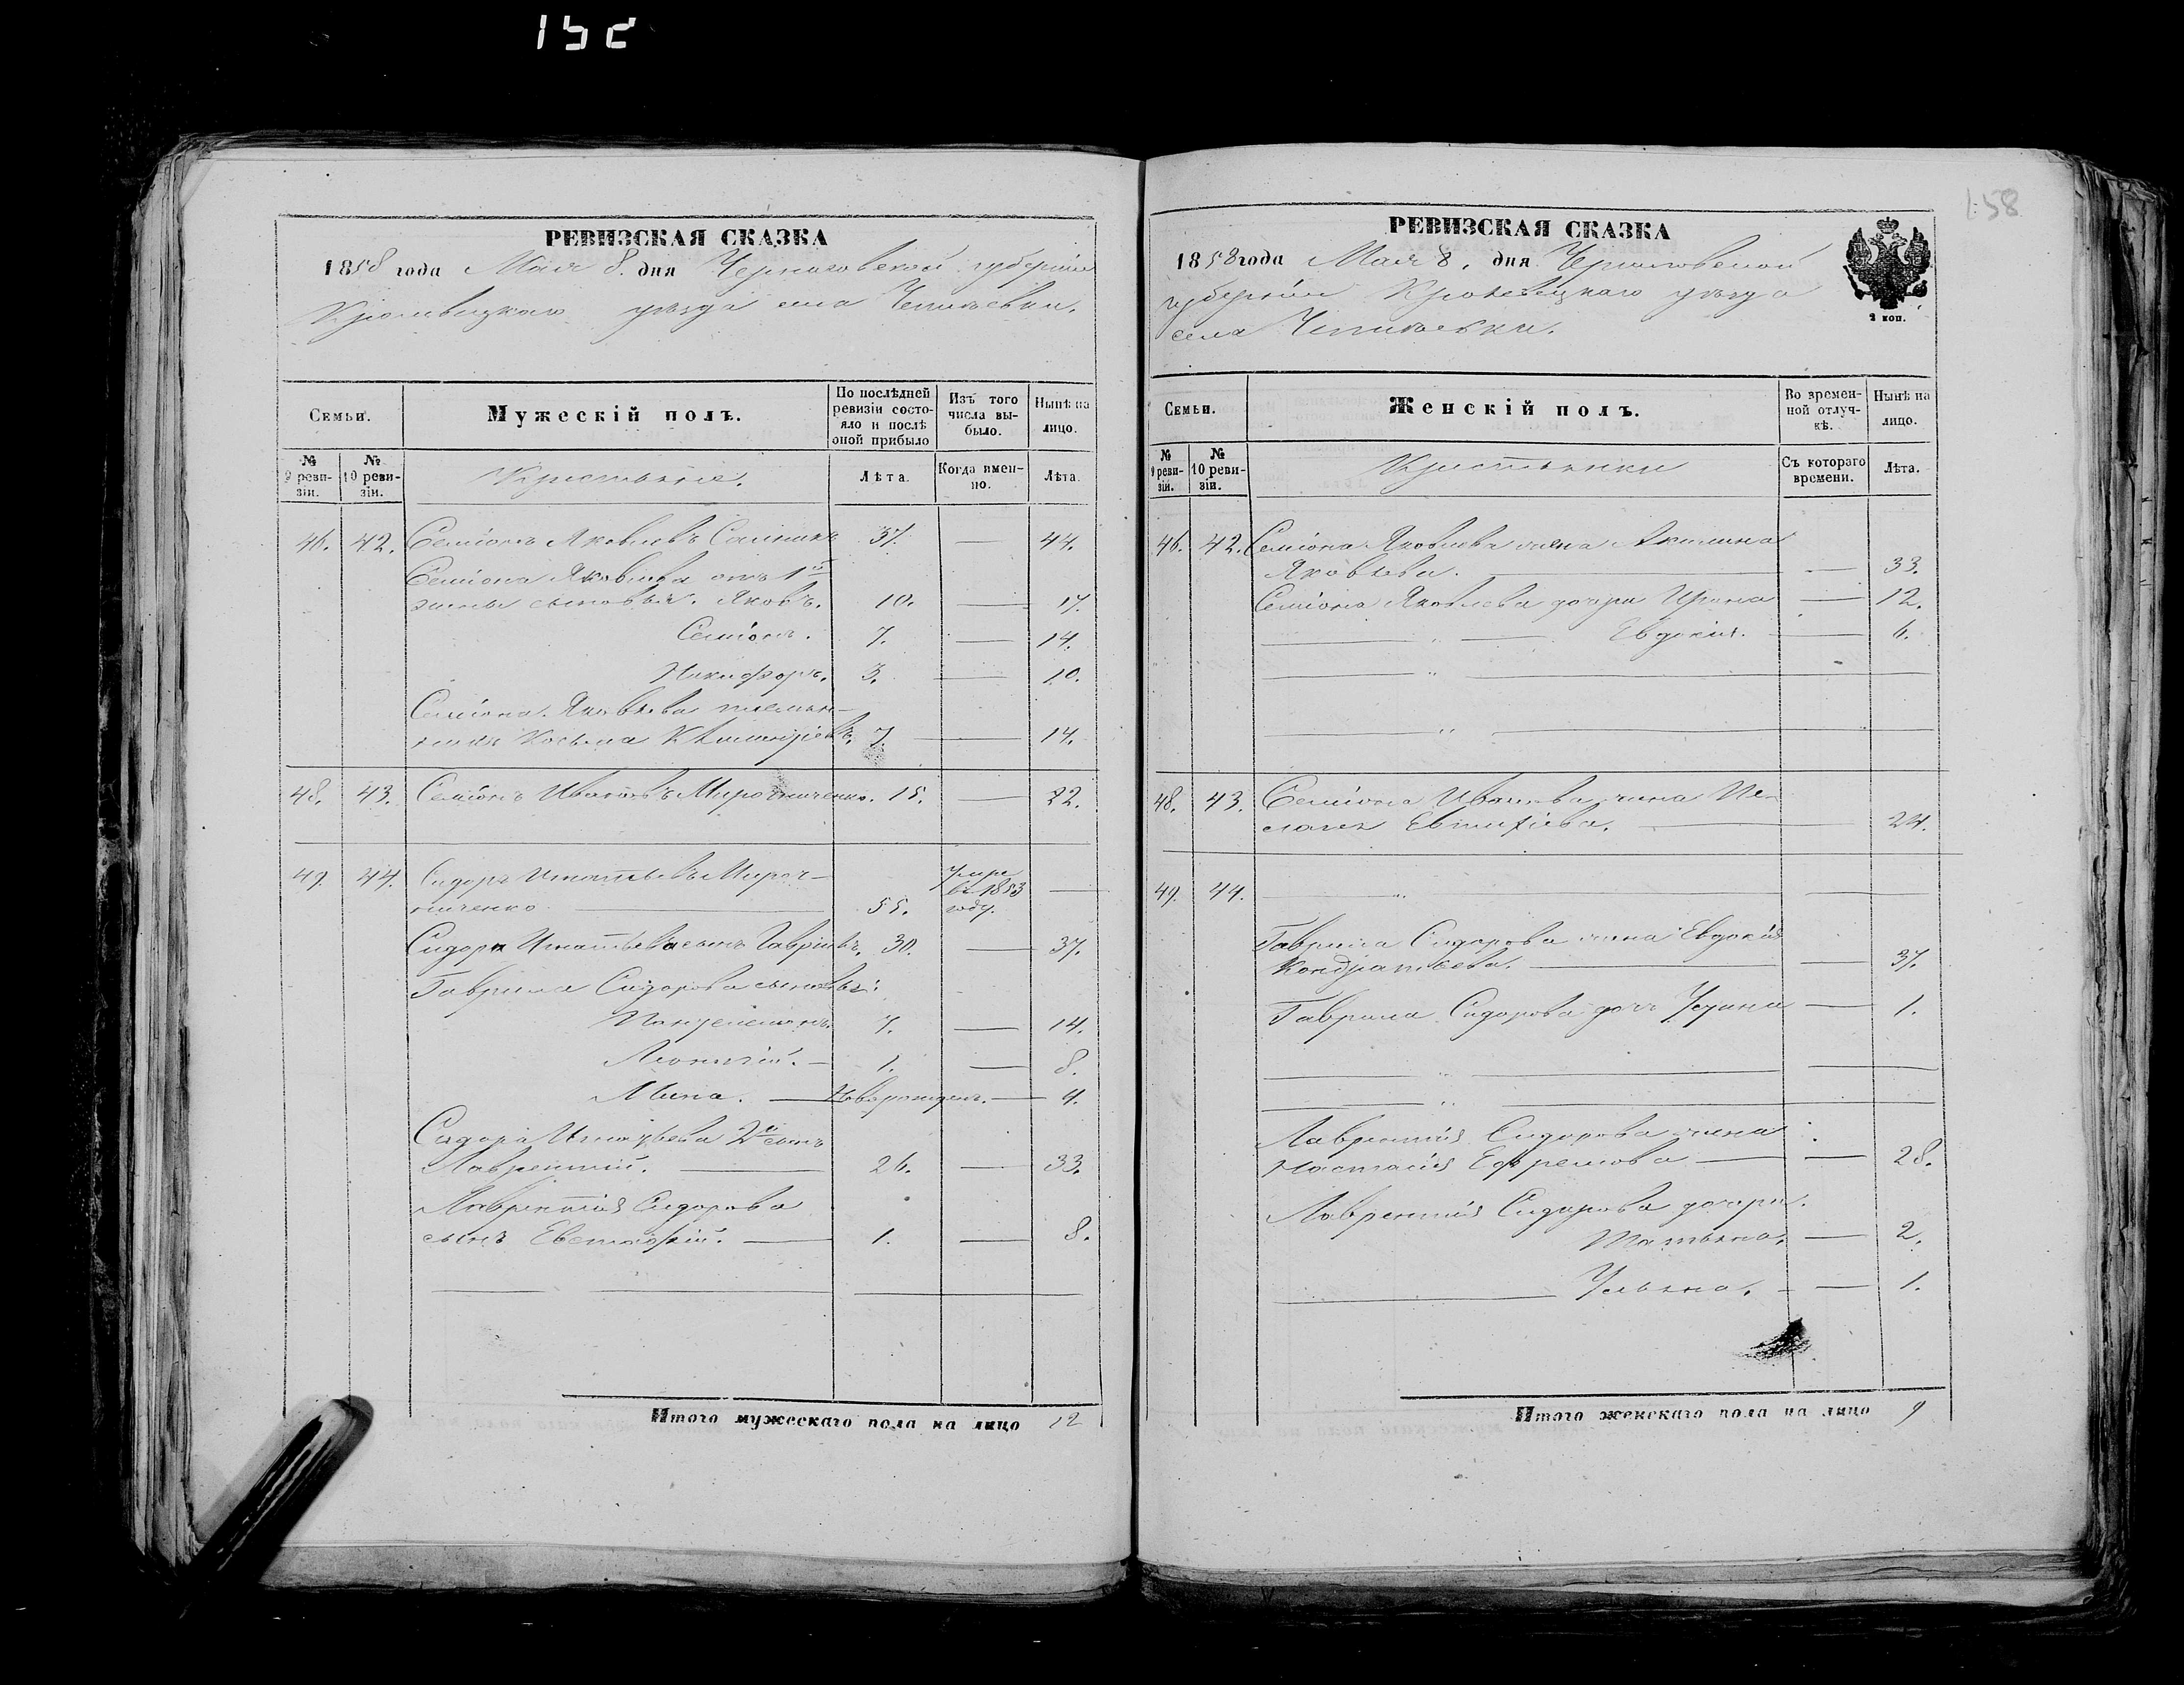 152
158
РЕВИЗСКАЯ СКАЗКА
1858 года Мая 8. дня Черниговской губерніи
Кролевецкаго уезда села Чепліевки.
Семьи.
Мужескій полъ.
По послѣдней ревизіи состояло и послѣ оной прибыло
Изъ того числа выбыло.
Нынѣ на лицо.
№ 9 ревизіи.
№ 10 ревизіи.
Крестьяне.
Лѣта.
Когда именно.
Лѣта.
46. 42. Семіонъ Яковлевъ 37. — 44.
Семіона Яковлева отъ 1й
жены сыновья. Яковъ. 10. — 17.
Семіонъ. 7. — 14.
Никифоръ. 3. — 10.
Семіона Яковлева племян-
никъ Косьма 7. — 14.
48. 43. Семіонъ Ивановъ Мирошниченко. 15. — 22.
49. 44. Сидоръ Игнатьевъ Мирош-
ниченко 55. Умре въ 1853 году. —
Сидора Игнатьева сынъ Гавріилъ. 30. — 37.
Гаврила Сидорова сыновья:
Пантелеимонъ. 7. — 14.
Леонтій. — 1. — 8.
Мина. — Новорожден. — 4.
Сидора Игнатьева 2й сынъ
Лаврентій. — 26. — 33.
Лаврентія Сидорова
сынъ Евстафій. — 1. — 8.
Итого мужескаго пола на лицо 12
РЕВИЗСКАЯ СКАЗКА
1858 года Мая 8. дня Черниговской
губерніи Кролевецкаго уезда
села Чепліевки.
2 коп.
Семьи.
Женскій полъ.
Во временной отлучкѣ.
Нынѣ на лицо.
№ 9 ревизіи.
№ 10 ревизіи.
Крестьянки
Съ котораго времени.
Лѣта.
46. 42. Семіона Яковлева жена Акилина
Яковлева. — — 33.
Семіона Яковлева дочери Ирина — 12.
— " — Евдокія. — 6.
— " —
— " —
48. 43. Семіона Иванова жена Пе-
лагея Евтифіева. — 24.
49. 44. — " — —
Гаврила Сидорова жена Евдокія
Кондратьева. — — 37.
Гаврила Сидорова дочь Устина — 1.
— " — —
— " —
Лаврентія Сидорова жена
Настасія Ефремова — — 28.
Лаврентія Сидорова дочери.
Татьяна. — 2.
— Ульяна. — 1.
Итого женскаго пола на лицо 9